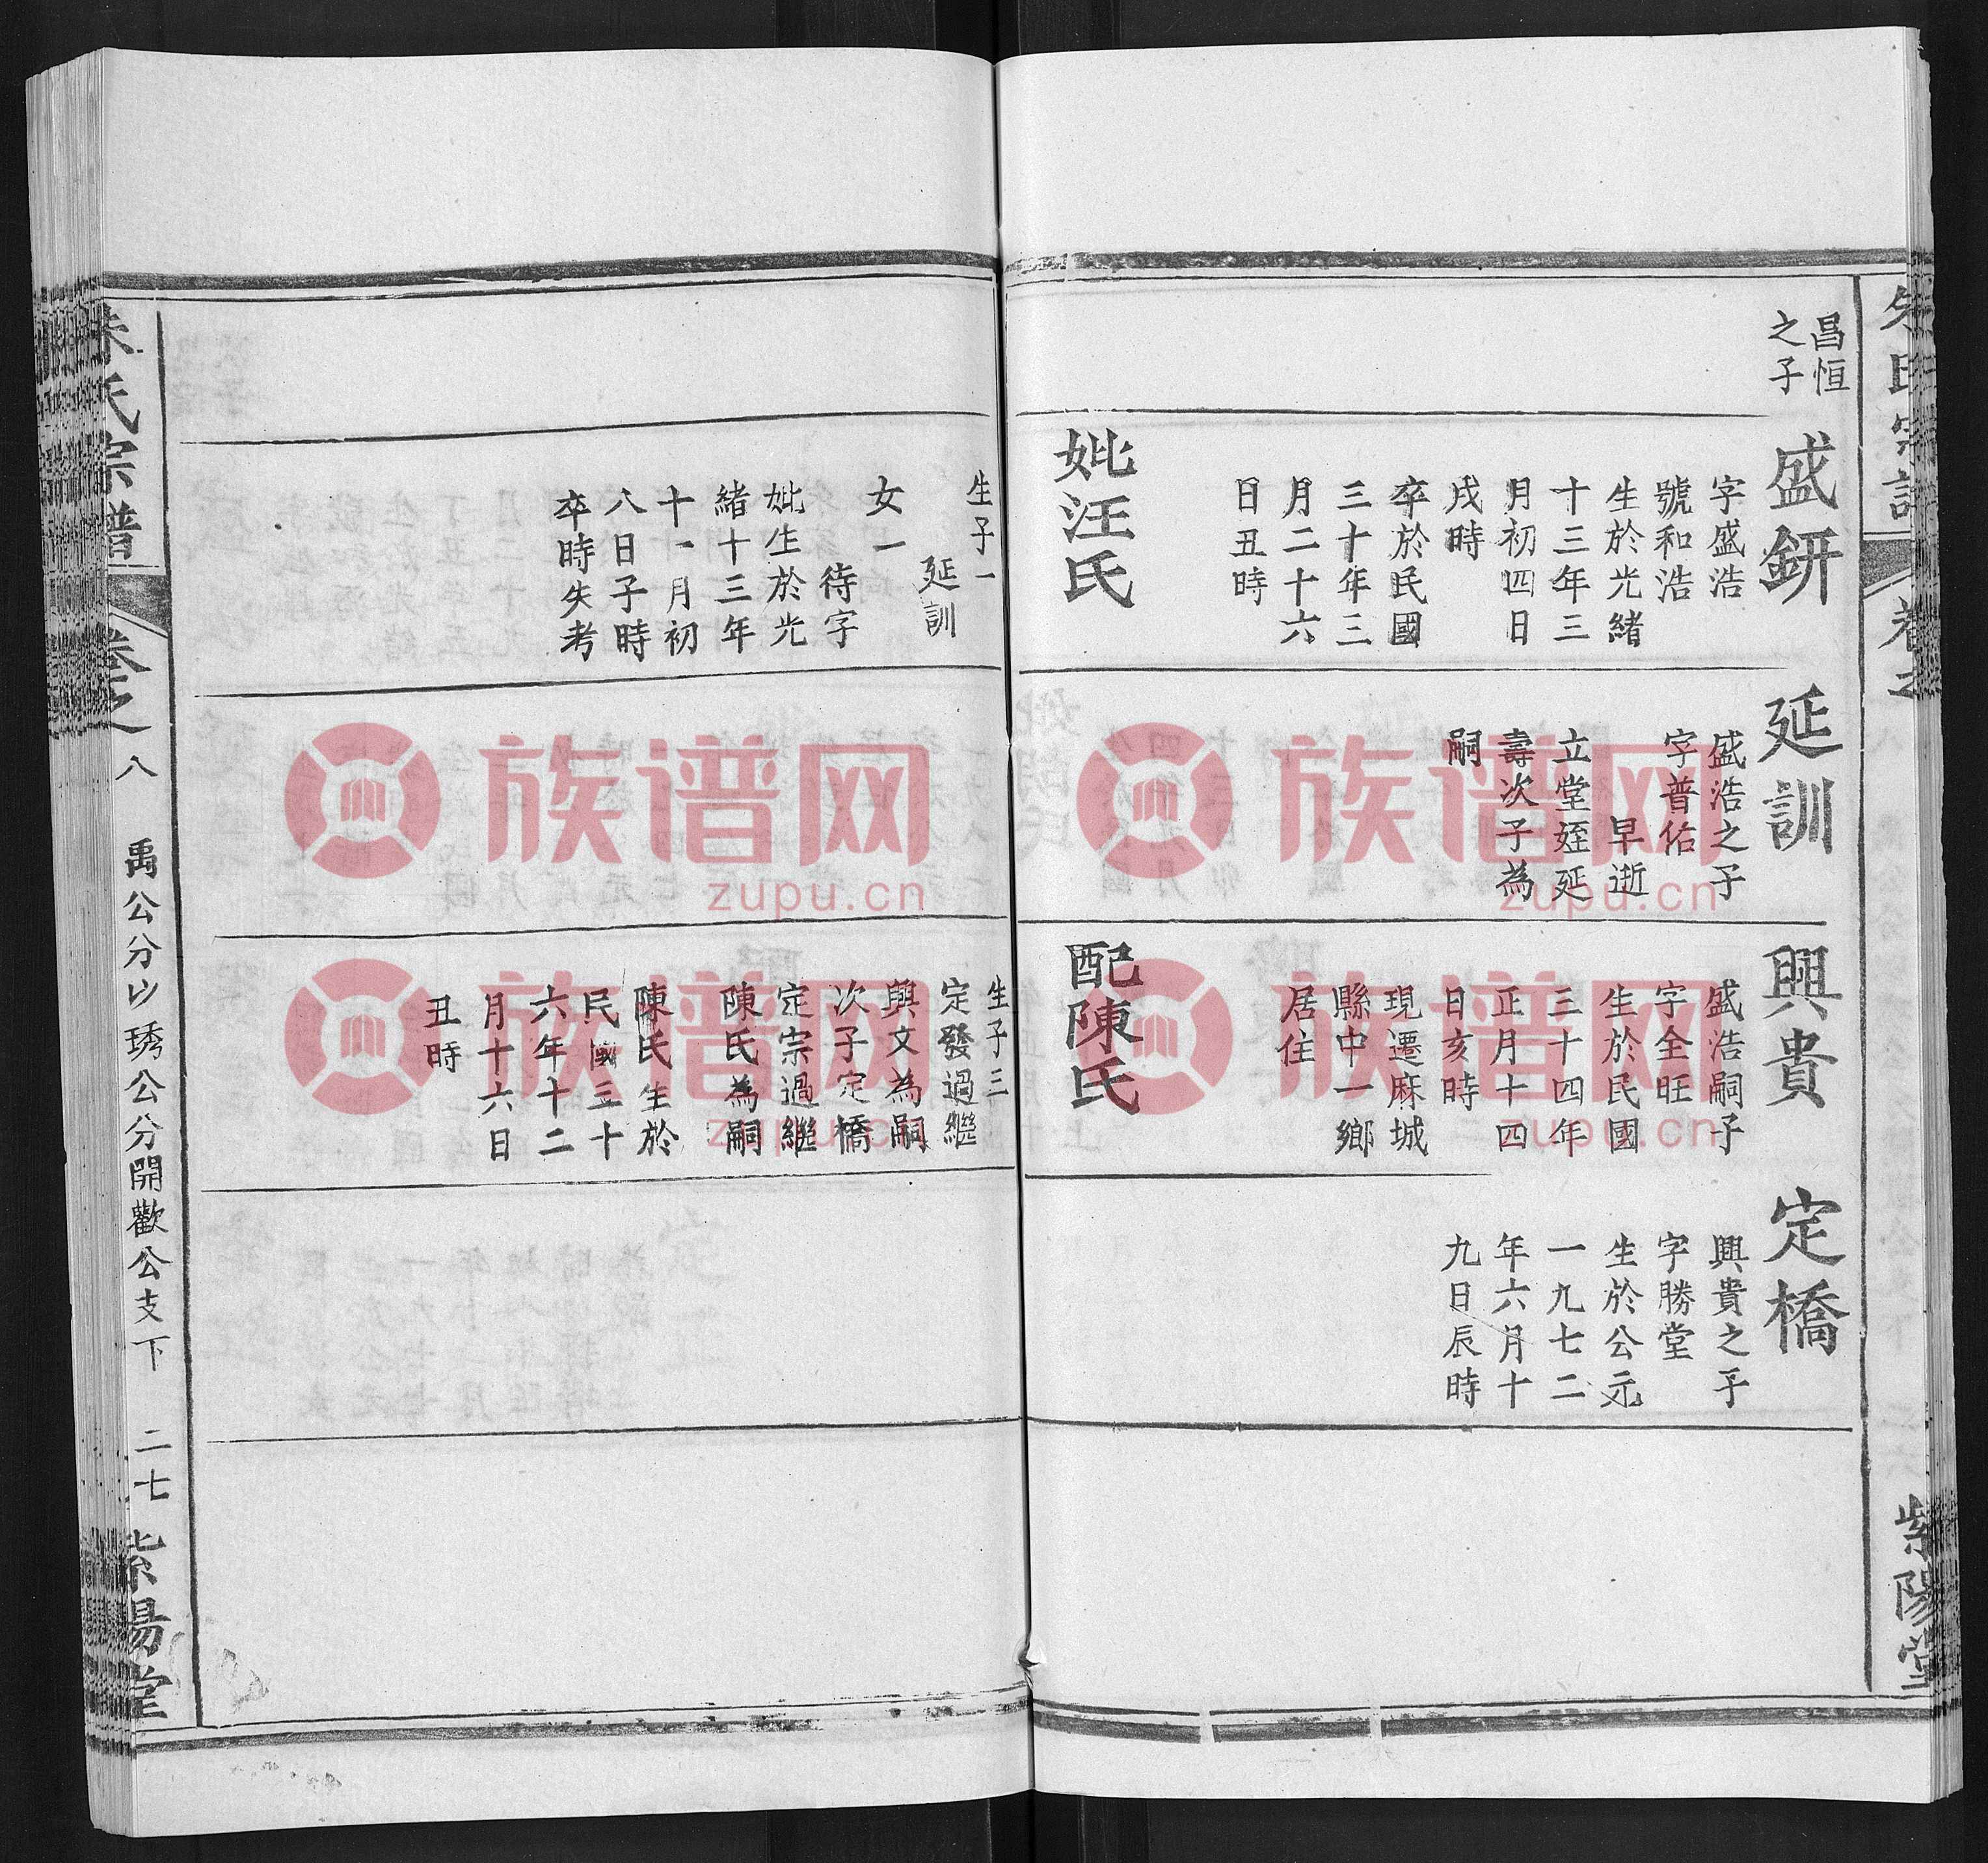 朱氏宗譜
卷之
紫陽堂
昌恒
之子
盛銒
字盛浩
號和浩
生於光緒
十三年三
月初四日
戌時
卒於民國
三十年三
月二十六
日丑時
妣汪氏
延訓
盛浩之子
字普佑
早逝
立堂姪延
壽次子為
嗣
興貴
盛浩嗣子
字全旺
生於民國
三十四年
正月十四
日亥時
現遷麻城
縣中一鄉
居住
配陳氏
定橋
興貴之子
字勝堂
生於公元
一九七二
年六月十
九日辰時
生子一
延訓
女一
待字
妣生於光
緒十三年
十一月初
八日子時
卒時失考
生子三
定發過繼
與文為嗣
次子定橋
定宗過繼
陳氏為嗣
陳氏生於
民國三十
六年十二
月十六日
丑時
朱氏宗譜
卷之
八
禹公分山琇公分開歡公支下
二七
紫陽堂
族谱网
zupu.cn
族谱网
zupu.cn
族谱网
zupu.cn
族谱网
zupu.cn